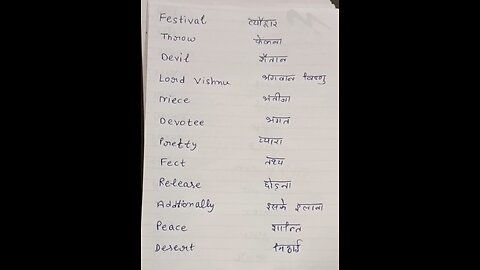 Festival त्यौहार
Throw फेकना
Devil शैतान
Lord Vishnu भगवान विष्णु
Niece भतीजा
Devotee भगत
Pretty प्यारा
Fect तथ्य
Release छोड़ना
Additonally इसके इलावा
Peace शान्ति
Desert मिठाई